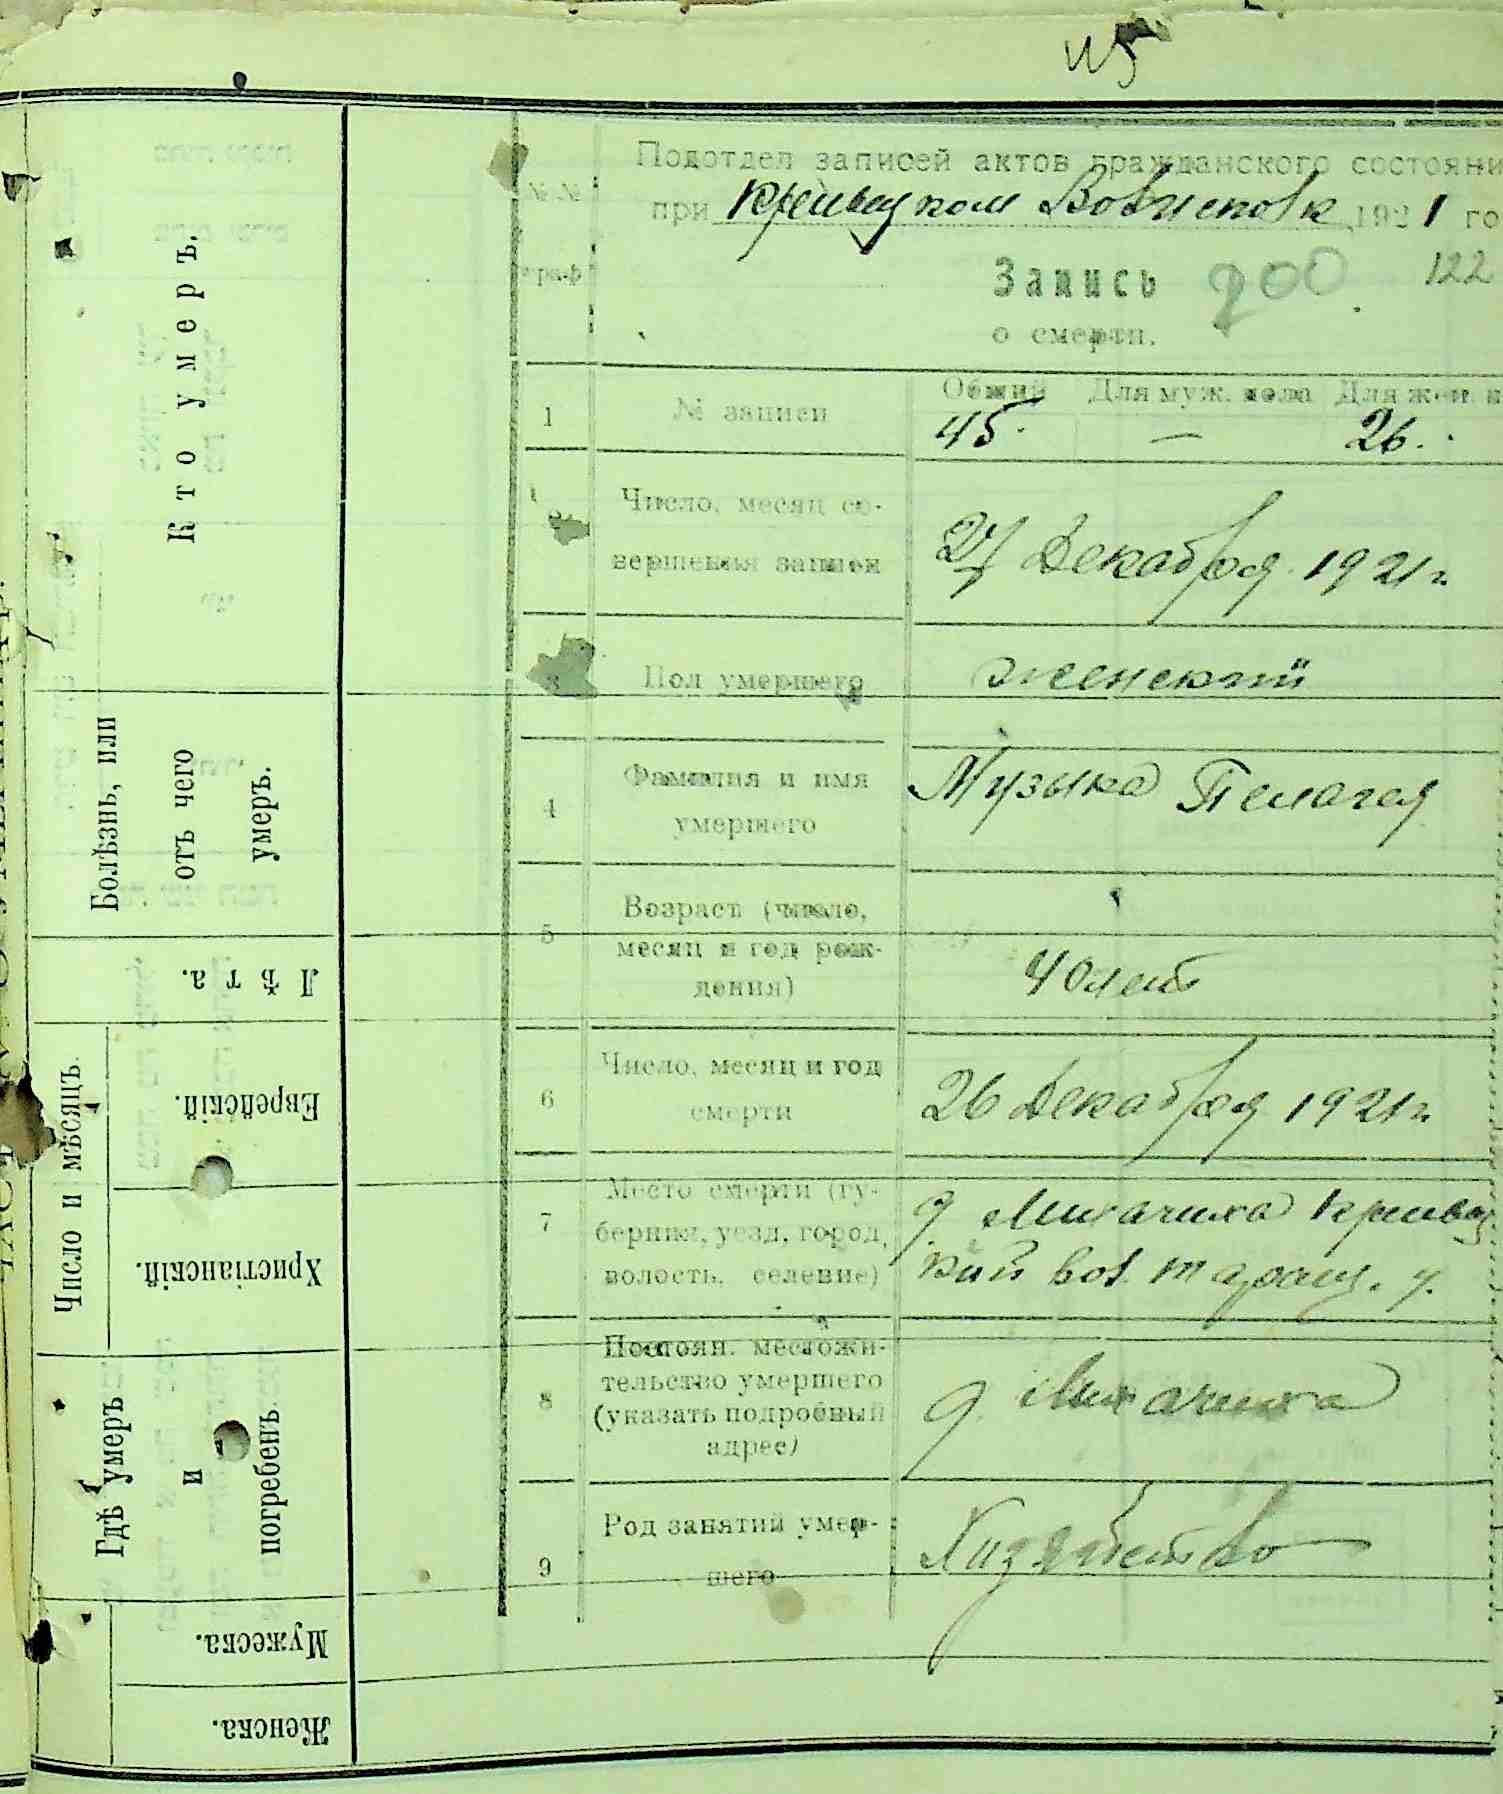 115
Подотдел записей актов гражданского состояни
при Кривецком Волисполк 1921 го
№№
граф
Запись 200 122
о смерти.
1 № записи Общий Для муж. пола Для жен. п
45. — 26.
2 Число, месяц со-
вершения записи
27 Декабря 1921 г.
3 Пол умершего женский
4 Фамилия и имя
умершего
Музыка Пелагея
5 Возраст (число,
месяц и год рож-
дения)
40 лет
6 Число, месяц и год
смерти
26 Декабря 1921 г.
7 Место смерти (гу-
берния, уезд, город,
волость, селение)
д. Лихачиха Кривец
кой вол. Таращ. у.
8 Постоян. местожи-
тельство умершего
(указать подробный
адрес)
д. Лихачиха
9 Род занятий умер-
шего
Кто умеръ.
Болѣзнь, или
отъ чего
умеръ.
Лѣта.
Число и мѣсяцъ.
Еврейскій.
Христіанскій.
Гдѣ умеръ
и
погребенъ.
Мужеска.
Женска.